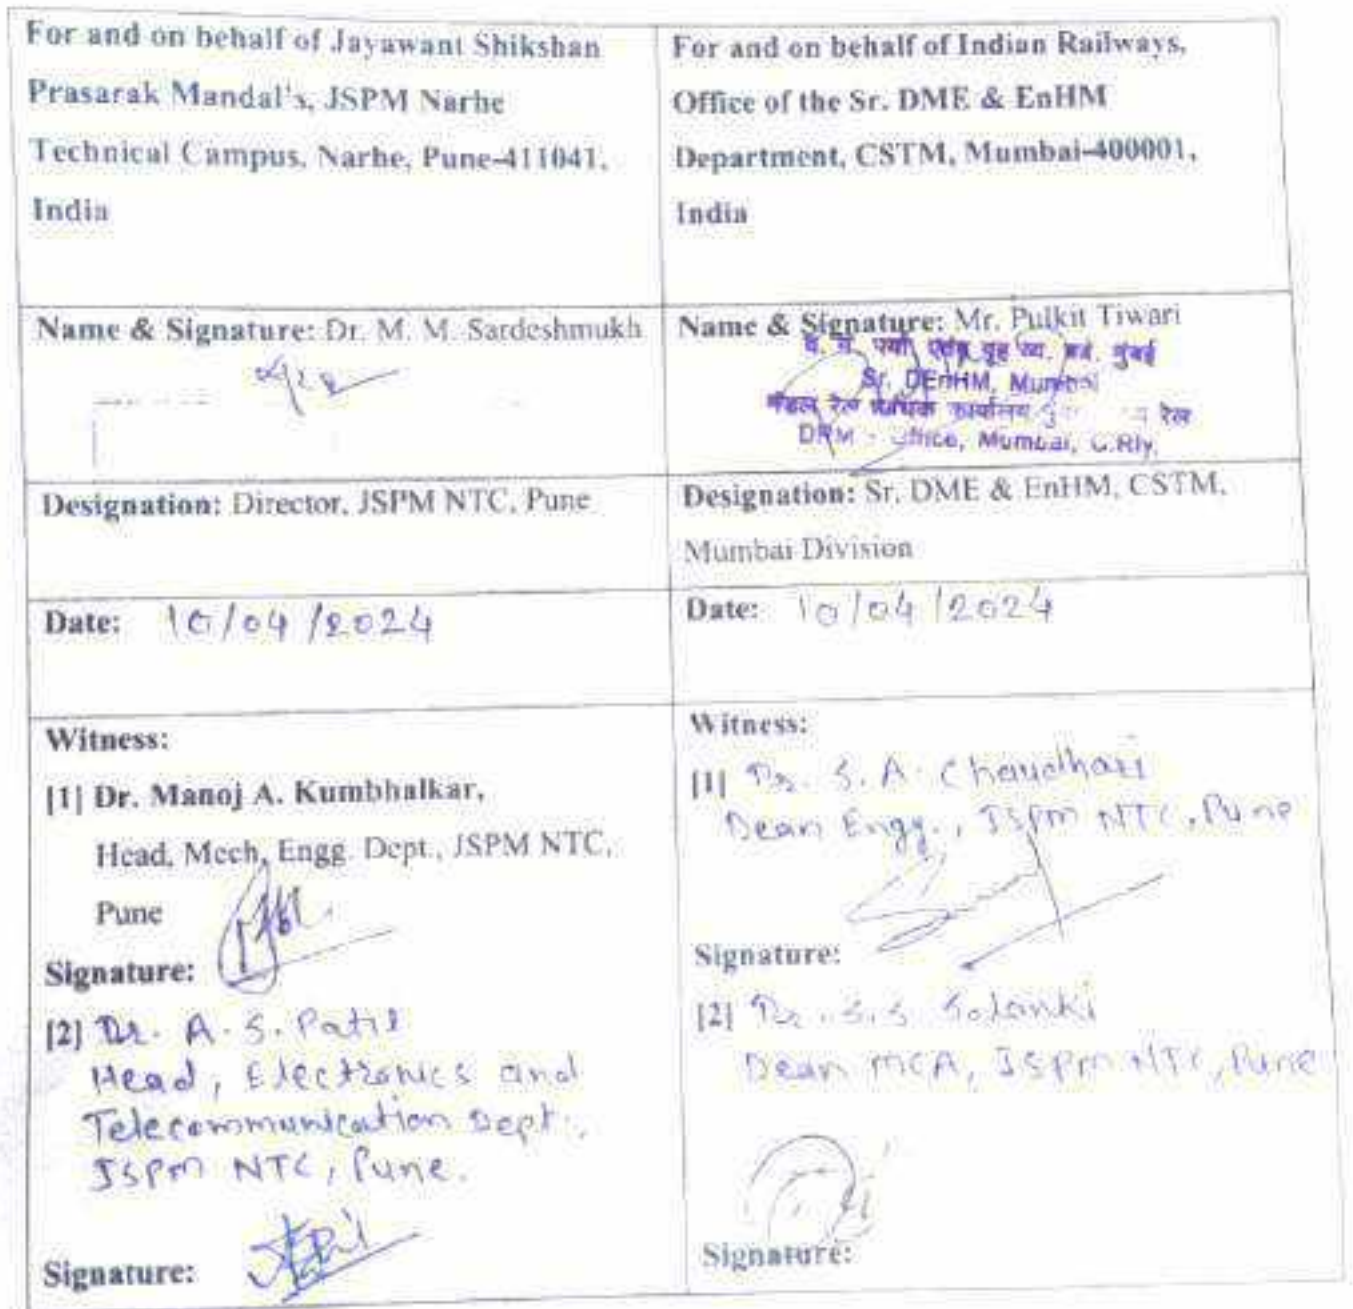 For and on behalf of Jayawant Shikshan
Prasarak Mandal's, JSPM Narhe
Technical Campus, Narhe, Pune-411041,
India
For and on behalf of Indian Railways,
Office of the Sr. DME & EnHM
Department, CSTM, Mumbai-400001,
India
Name & Signature: Dr. M. M. Sardeshmukh
Name & Signature: Mr. Pulkit Tiwari
मुंबई
Sr. DEnHM, Mumbai
मंडल रेल कार्यालय रेल
DRM - Office, Mumbai, C.Rly.
Designation: Director, JSPM NTC, Pune
Designation: Sr. DME & EnHM, CSTM,
Mumbai Division
Date: 10/04/2024
Date: 10/04/2024
Witness:
[1] Dr. Manoj A. Kumbhalkar,
Head, Mech, Engg. Dept., JSPM NTC,
Pune
Signature:
[2] Dr. A. S. Patil
Head, Electronics and
Telecommunication Dept.,
JSPM NTC, Pune.
Signature:
Witness:
[1] Dr. S. A. Chaudhari
Dean Engg., JSPM NTC, Pune
Signature:
[2] Dr. S.S. Solanki
Dean MCA, JSPM NTC, Pune
Signature: